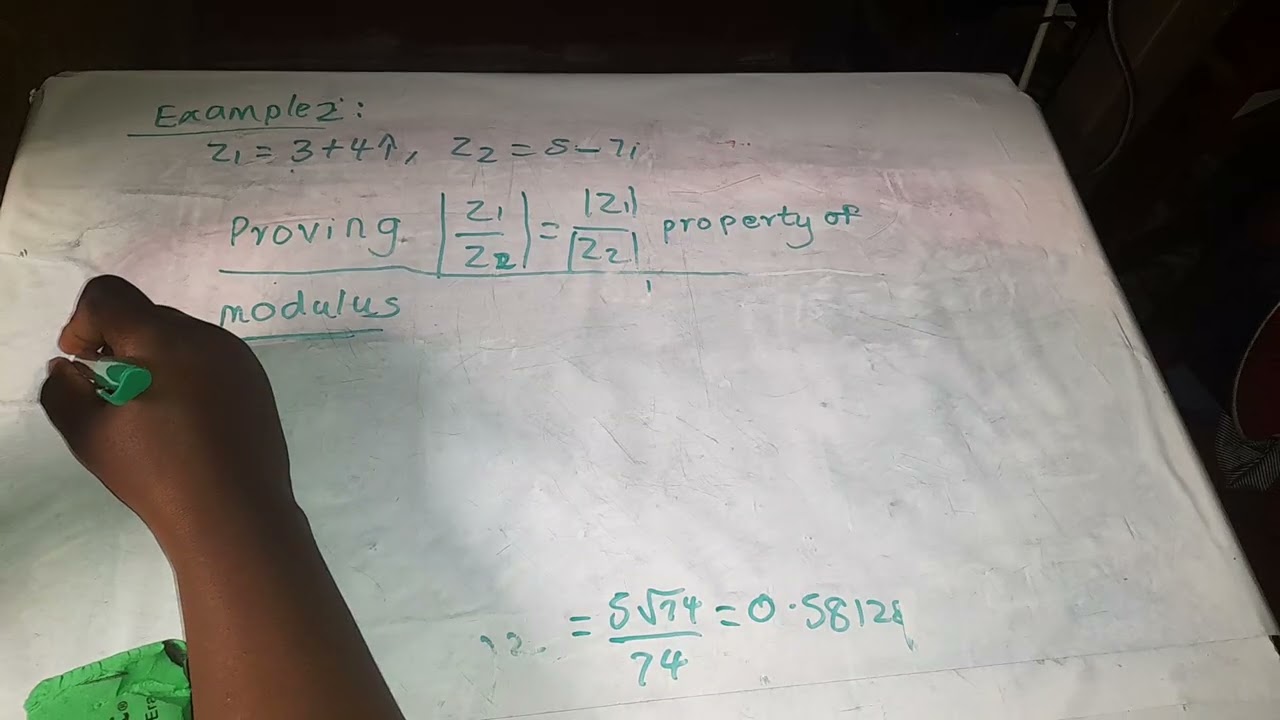 Example 2:
Z1 = 3 + 4i, Z2 = 5 - 7i
Proving |Z1/Z2| = |Z1|/|Z2| property of
modulus
= 5√74/74 = 0.58124